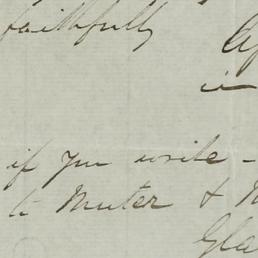 faithfully
if you write -
to Muter &
Gla